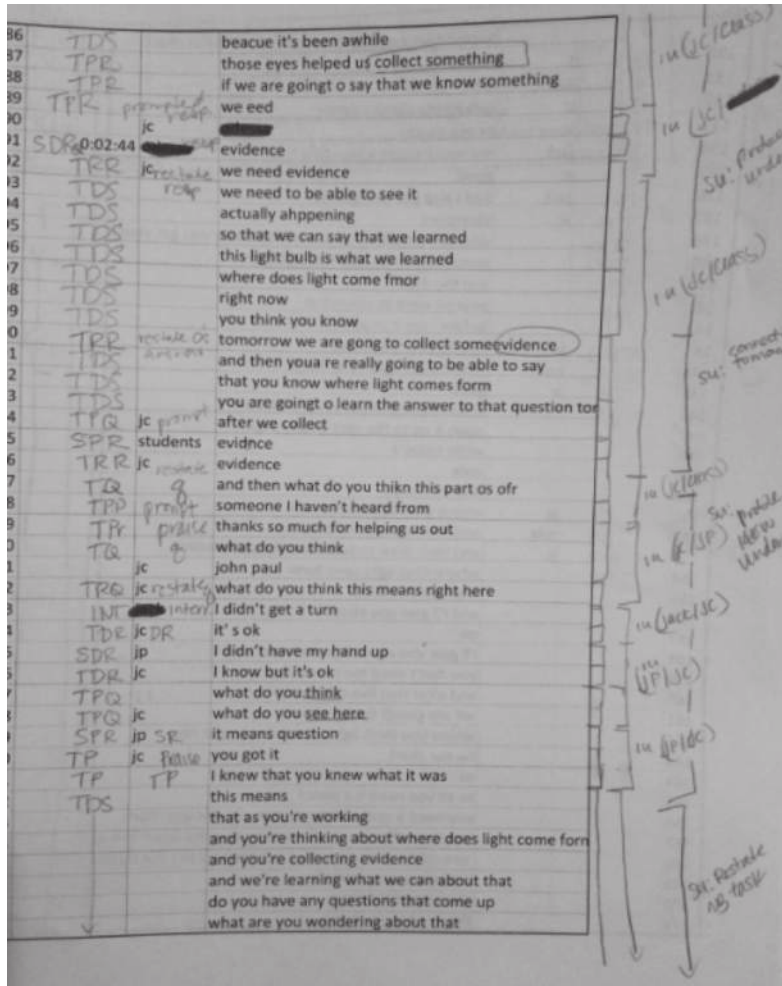 86 TDS beacue it's been awhile
87 TPR those eyes helped us collect something
88 TPR if we are goingt o say that we know something
89 TPR prompted resp we eed
jc
SDR 0:02:44 resp evidence
TRR jc restate resp we need evidence
TDS we need to be able to see it
TDS actually ahppening
TDS so that we can say that we learned
TDS this light bulb is what we learned
TDS where does light come fmor
TDS right now
TDS you think you know
TRR restate tomorrow we are gong to collect someevidence
TDS and then youa re really going to be able to say
TDS that you know where light comes form
TDS you are goingt o learn the answer to that question tor
TPQ jc prompt after we collect
SPR students evidnce
TRR jc restate evidence
TQ q and then what do you thikn this part os ofr
prompt someone I haven't heard from
TPr praise thanks so much for helping us out
TQ q what do you think
jc john paul
TRQ jc restate q what do you think this means right here
INT interr I didn't get a turn
TDR jc DR it' s ok
SDR jp I didn't have my hand up
TDR jc I know but it's ok
TPQ what do you think
TPQ jc what do you see here
SPR jp SR it means question
TP jc Praise you got it
TP TP I knew that you knew what it was
TDS this means
that as you're working
and you're thinking about where does light come forn
and you're collecting evidence
and we're learning what we can about that
do you have any questions that come up
what are you wondering about that
in (jc/class)
in (jc/
su:
in (jc/class)
su: connect
in (jc/class)
su: NEW
in (jc/JP)
in (jack/JC)
in (JP/JC)
in (jp/jc)
su: Restate
NB task